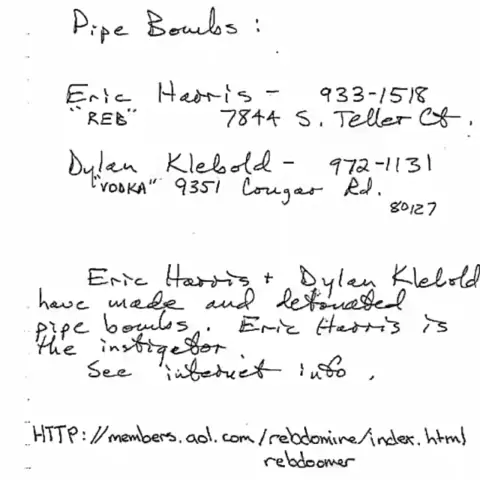 Pipe Bombs :
Eric Harris - 933-1518
"REB" 7844 S. Teller Ct.
Dylan Klebold - 972-1131
"VODKA" 9351 Cougar Rd.
80127
Eric Harris + Dylan Klebold
have made and detonated
pipe bombs. Eric Harris is
the instigetor.
See internet info.
HTTP://members.aol.com/rebdomine/index.html
rebdoomer